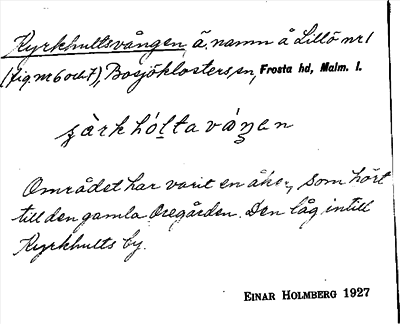 Kyrkhultsvången, ä. namn å Lillö nr 1
(fig. nr 6 och 7), Bosjöklosters sn, Frosta hd, Malm. l.
Området har varit en åker, som hört
till den gamla Oregården. Den låg intill
Kyrkhults by.
EINAR HOLMBERG 1927